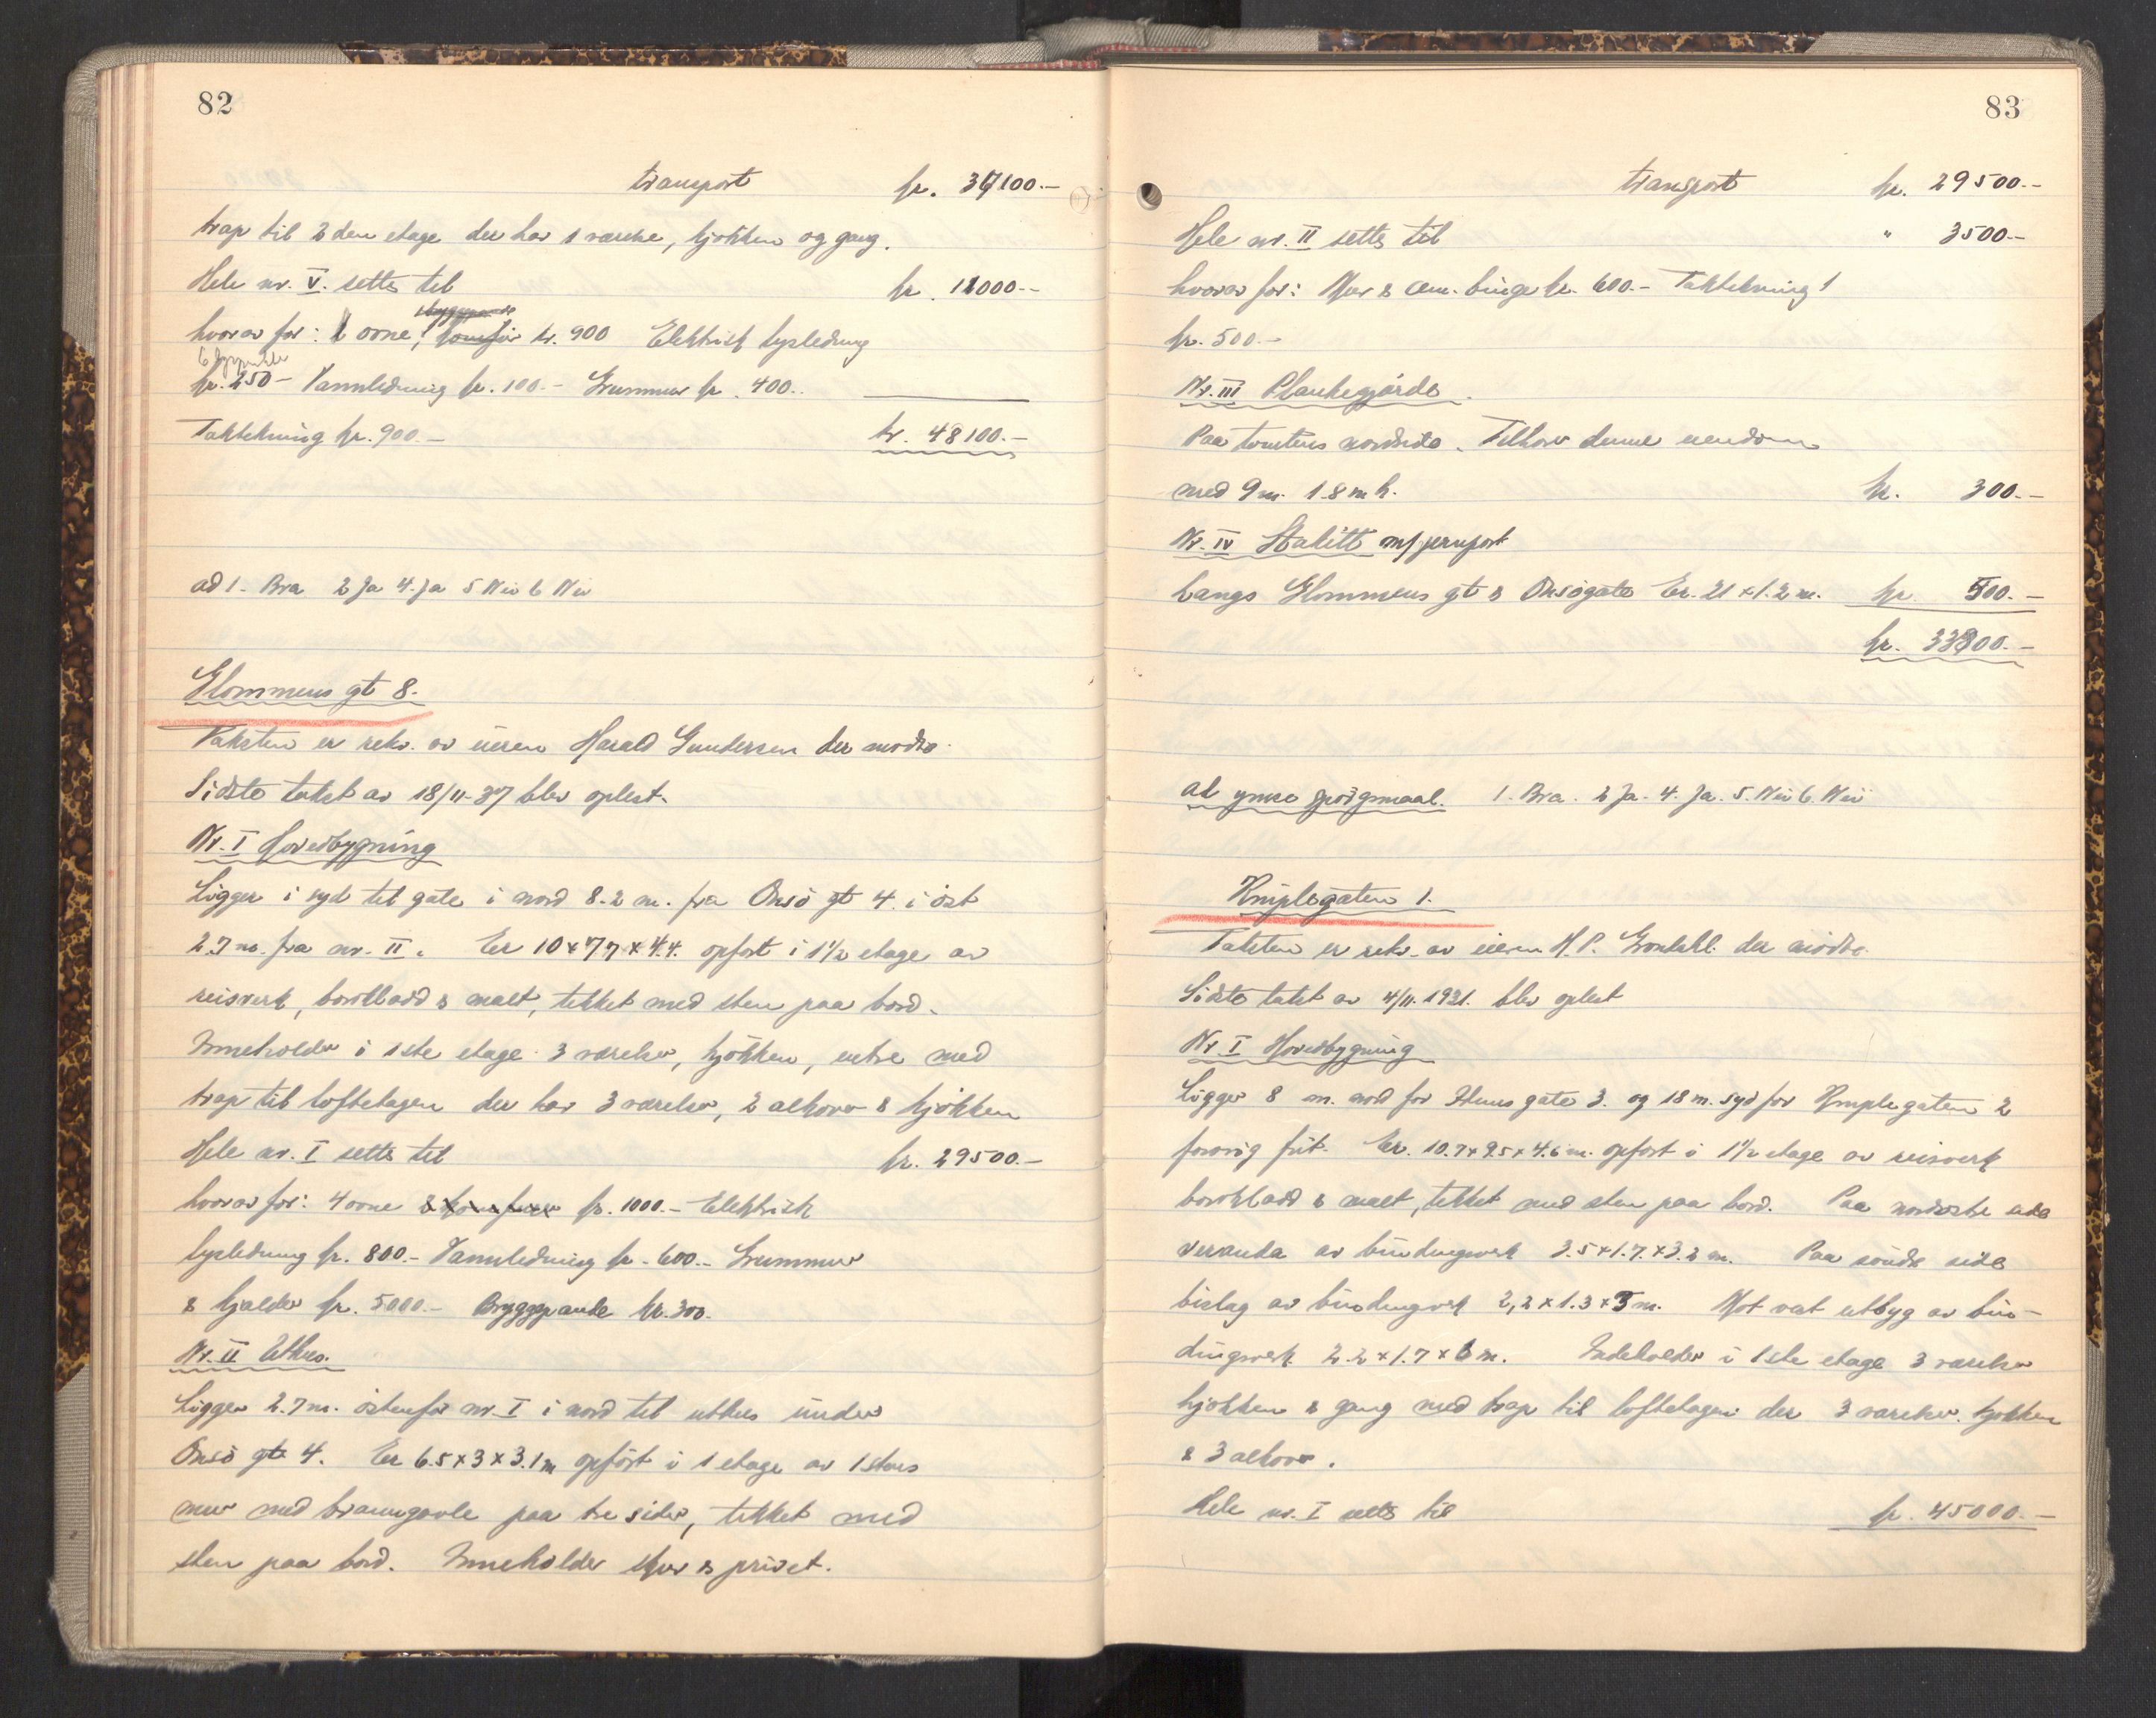 82
transport kr. 37100.-
trap til 2den etage der har 1 værelse, kjøkken og gang.
Hele nr. V. settes til kr. 11000.-
hvorav for: 1 ovne, komfür kr. 900 Elektrisk lysledning
6 lyspunkter
kr. 250- Vannledning kr. 100.- Grunnmur kr. 400.-
Taktekning kr. 900.- kr. 48100.-
ad 1. Bra 2 Ja 4. Ja 5 Nei 6 Nei
Glommens gt 8.
Taksten er rekv. av eieren Harald Gundersen der mødte.
Sidste takst av 18/11-37 blev oplest.
Nr. I Hovedbygning
Ligger i syd til gate i nord 8.2 m. fra Onsö gt 4. i öst
2.7 m. fra nr. II. Er 10 x 7,7 x 4.4. opført i 1 1/2 etage av
reisverk, bordklædd & malt, tekket med sten paa bord.
Inneholder i 1ste etage 3 værelser, kjökken, entre med
trap til loftetagen der har 3 værelser, 2 alkover & kjökken
Hele nr. I settes til kr. 29500.-
hvorav for: 4 ovne & komfurer kr. 1000.- Elektrisk
lysledning kr. 800.- Vannledning kr. 600.- Grunnmur
& kjelder kr. 5000.- Bryggepanne kr. 300.
Nr. II Uthus.
Ligger 2.7 m. östenfor nr. I i nord til uthus under
Onsö gt 4. Er 6.5 x 3 x 3.1 m opfört i 1 etage av 1 stens
mur med branngavle paa tre sider, tekket med
sten paa bord. Inneholder skur & privet.
83
transport kr. 29500.-
Hele nr. II settes til " 3500.-
hvorav for: Mur & cem. binge kr. 600.- Taktekning
kr. 500.-
Nr. III Plankegjærde.
Paa tomtens nordside. Tilhører denne eiendom
med 9 m. 1.8 m h. kr. 300.-
Nr. IV Stakitt m/ jernport
Langs Glommens gt & Onsögate Er. 21 x 1.2 m. kr. 500.-
kr. 33800.-
ad ymse spörgsmaal. 1. Bra. 2 Ja. 4. Ja. 5. Nei 6. Nei
Kniplegaten 1.
Taksten er rekv. av eieren H. P. Gröndahl. der mödte.
Sidste takst av 4/11. 1921. blev oplest
Nr I Hovedbygning
Ligger 8 m. nord for gate 3. og 18 m. syd for Kniplegaten 2
forövrig frit. Er. 10.7 x 9.5 x 4.6 m. opfört i 1 1/2 etage av reisverk
bordklædd & malt, tekket med sten paa bord. Paa nordöstre side
veranda av bindingverk 3.5 x 1.7. x 3.2 m. Paa söndre side
bislag av bindingverk 2,2 x 1.3 x 3 m. Mot vest utbyg av bin-
dingverk 2.2 x 1.7 x 6 m. Indeholder i 1ste etage 3 værelser
kjökken & gang med trap til loftetagen der 3 værelser, kjökken
& 3 alkover.
Hele nr. I settes til kr. 45000.-